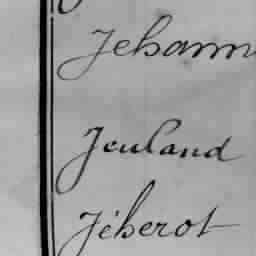 Jehann
Jeuland
Jéherot